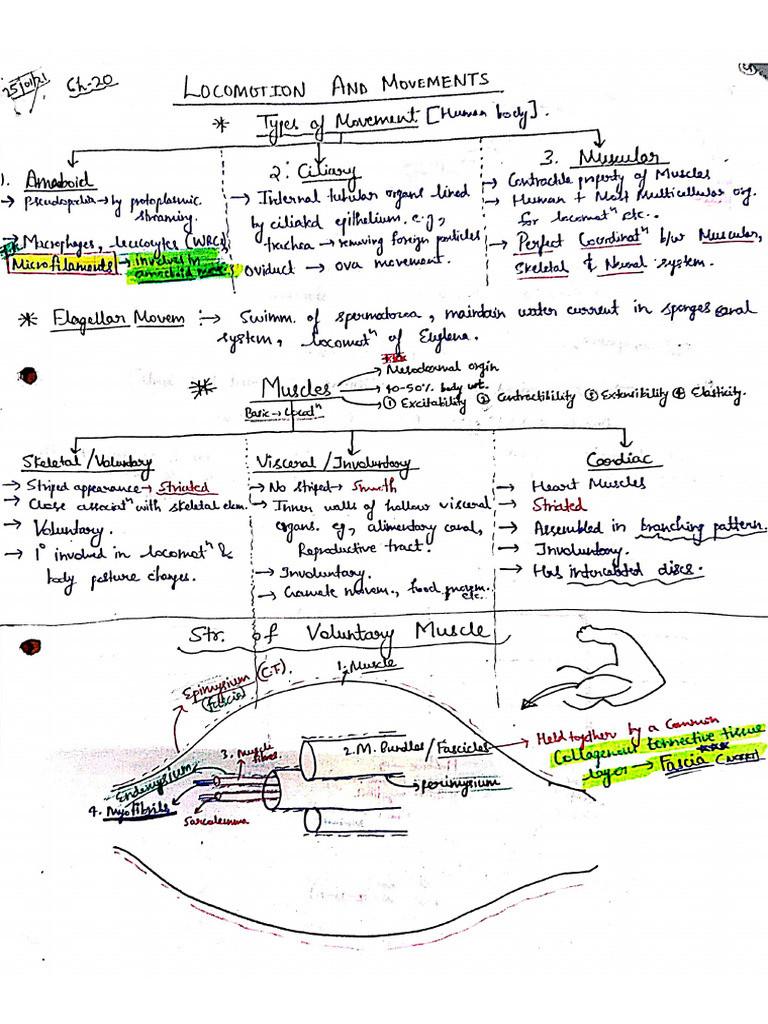 25/01/21 Ch-20
LOCOMOTION AND MOVEMENTS
* Types of Movement [Human body].
1. Amoeboid
→ Pseudopodia → by protoplasmic
streaming.
→ Macrophages, leucocytes (WBCs)
Microfilaments → involves in
amoeboid
2. Ciliary
→ Internal tubular organs lined
by ciliated epithelium. e.g,
trachea → removing foreign particles
oviduct → ova movement.
3. Muscular
→ Contractile property of Muscles
→ Human + Most Multicellular org.
for locomatⁿ etc.
→ Perfect Coordinatⁿ b/w Muscular,
Skeletal & Neural system.
* Flagellar Movem :→ Swimm. of spermatozoa, maintain water current in sponges canal
system, locomotⁿ of Euglena.
** Muscles
Basic → Locatⁿ
→ Mesodermal orgin
→ 40-50% body wt.
→ ① Excitability ② Contractibility ③ Extensibility ④ Elasticity.
Skeletal/Voluntary
→ Striped appearance → Striated
→ Close associatⁿ with skeletal elem.
→ Voluntary.
→ 1° involved in locomatⁿ &
body posture changes.
Visceral/Involuntory
→ No striped → Smooth
→ Inner walls of hollow visceral
organs. eg, alimentary canal,
Reproductive tract.
→ Involuntary.
→ Gamate movem., food movem.
etc.
Cardiac
→ Heart Muscles
→ Striated
→ Assembled in branching pattern.
→ Involuntory.
→ Has intercalated discs.
Str. of Voluntary Muscle
Epimysium (C.T).
(fascia)
1. Muscle
2. M. Bundles/Fascicles
→ Held together by a common
Collagenous connective tissue
layer → Fascia
3. Muscle
fibres
Endomysium
→ perimysium
4. Myofibrils
Sarcolemma